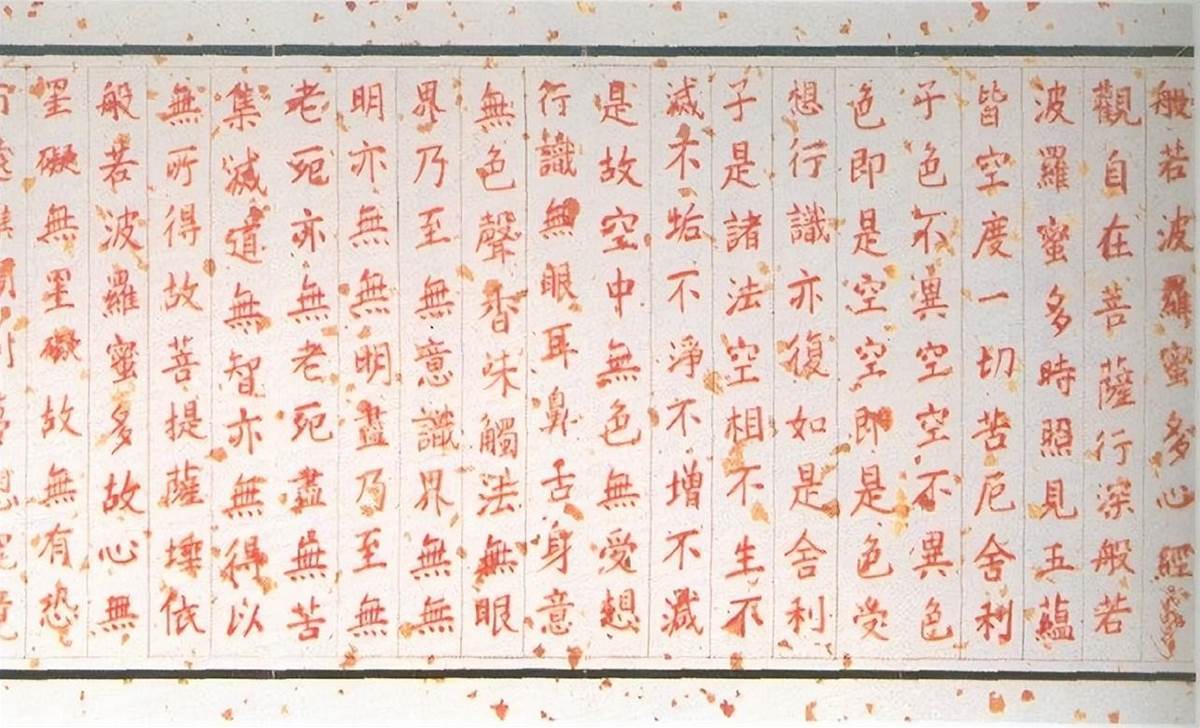 般若波羅蜜多心經
觀自在菩薩行深般若
波羅蜜多時照見五蘊
皆空度一切苦厄舍利
子色不異空空不異色
色即是空空即是色受
想行識亦復如是舍利
子是諸法空相不生不
滅不垢不淨不增不減
是故空中無色無受想
行識無眼耳鼻舌身意
無色聲香味觸法無眼
界乃至無意識界無無
明亦無無明盡乃至無
老死亦無老死盡無苦
集滅道無智亦無得以
無所得故菩提薩埵依
般若波羅蜜多故心無
罣礙無罣礙故無有恐